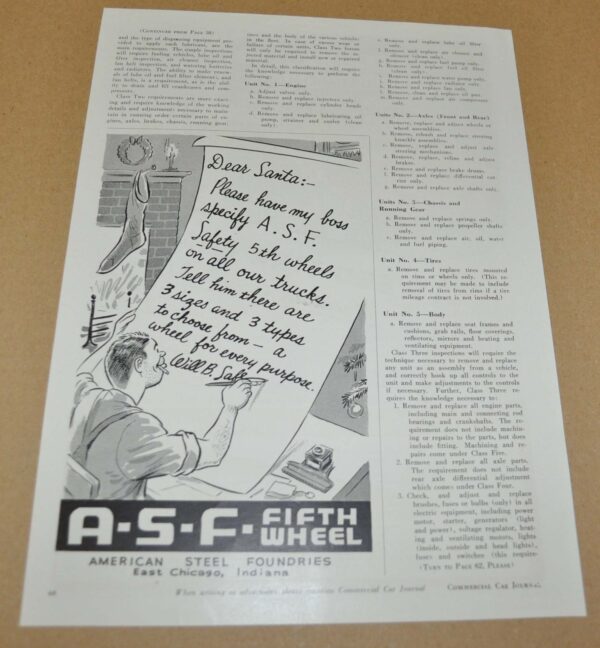 (Continued from Page 58)
and the type of dispensing equipment provided to apply such lubricants, are the
main requirements. The couple inspections
will require fueling vehicles, lube oil and
filter inspection, air cleaner inspection,
fan belt inspection, and watering batteries
and radiators. The ability to make renewals of lube oil and fuel filter elements, and
fan belts, is a requirement, as is the ability to drain and fill crankcases and compressors.
Class Two requirements are more exacting and require knowledge of the working
details and adjustments necessary to maintain in running order certain parts of engines, axles, brakes, chassis, running gear,
tires and the body of the various vehicles
in the fleet. In case of excess wear or
failure of certain units, Class Two forces
will only be required to remove the affected material and install new or repaired
material.
In detail, this classification will require
the knowledge necessary to perform the
following:
Unit No. 1—Engine
a. Adjust valves only.
b. Remove and replace injectors only.
c. Remove and replace cylinder heads
only.
d. Remove and replace lubricating oil
pump, strainer and cooler (clean
only).
e. Remove and replace lube oil filter
only.
f. Remove and replace air cleaner and
silencer (clean only).
g. Remove and replace fuel pump only.
h. Remove and replace fuel oil filter
(clean only).
Remove and replace water pump only.
Remove and replace radiator only.
Remove and replace fan only.
Remove, clean and replace oil pan.
Remove and replace air compressor
only.
Units No. 2—Axles (Front and Rear)
a. Remove, replace and adjust wheels or
wheel assemblies.
b. Remove, rebush and replace steering
knuckle assemblies.
c. Remove, replace and adjust axle
steering mechanisms.
d. Remove, replace, reline and adjust
brakes.
e. Remove and replace brake drums.
f. Remove and replace differential carrier only.
g. Remove and replace axle shafts only.
Units No. 3—Chassis and
Running Gear
a. Remove and replace springs only.
b. Remove and replace propeller shafts
only.
c. Remove and replace air, oil, water
and fuel piping.
Unit No. 4—Tires
a. Remove and replace tires mounted
on rims or wheels only. (This requirement may be made to include
removal of tires from rims if a tire
mileage contract is not involved.)
Unit No. 5—Body
a. Remove and replace seat frames and
cushions, grab rails, floor coverings,
reflectors, mirrors and heating and
ventilating equipment.
Class Three inspections will require the
technique necessary to remove and replace
any unit as an assembly from a vehicle,
and correctly hook up all controls to the
unit and make adjustments to the controls
if necessary. Further, Class Three requires the knowledge necessary to:
1. Remove and replace all engine parts,
including main and connecting rod
bearings and crankshafts. The requirement does not include machining or repairs to the parts, but does
include fitting. Machining and repairs come under Class Five.
2. Remove and replace all axle parts.
The requirement does not include
rear axle differential adjustment
which comes under Class Four.
3. Check, and adjust and replace
brushes, fuses or bulbs (only) in all
electric equipment, including power
motor, starter, generators (light
and power), voltage regulator, heating and ventilating motors, lights
(inside, outside and head lights),
fuses and switches (this require-
(Turn to Page 62, Please)
Dear Santa:-
Please have my boss
specify A.S.F.
Safety 5th wheels
on all our trucks.
Tell him there are
3 sizes and 3 types
to choose from — a
wheel for every purpose.
Will B. Safe
A-S-F- FIFTH
WHEEL
AMERICAN STEEL FOUNDRIES
East Chicago, Indiana
60
When writing to advertisers please mention Commercial Car Journal
Commercial Car Journal